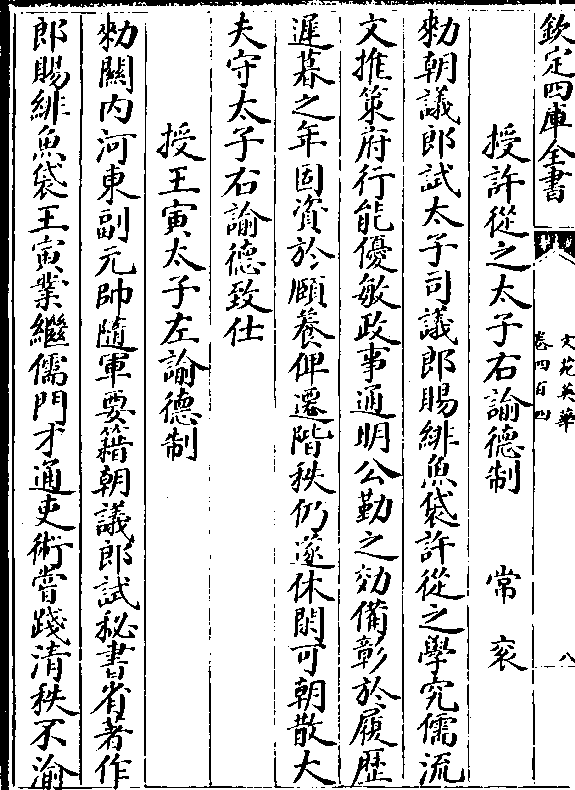 欽定四庫全書
文苑英華
卷四百四
八
授許從之太子右諭德制 常衮
勑朝議郎試太子司議郎賜緋魚袋許從之學究儒流
文推策府行能優敏政事通明公勤之効備彰於履歴
遲暮之年固資於頤養俾遷階秩仍遂休閑可朝散大
夫守太子右諭德致仕
授王寅太子左諭德制
勑關内河東副元帥隨軍要籍朝議郎試秘書省著作
郎賜緋魚袋王寅業繼儒門才通吏術嘗踐清秩不渝